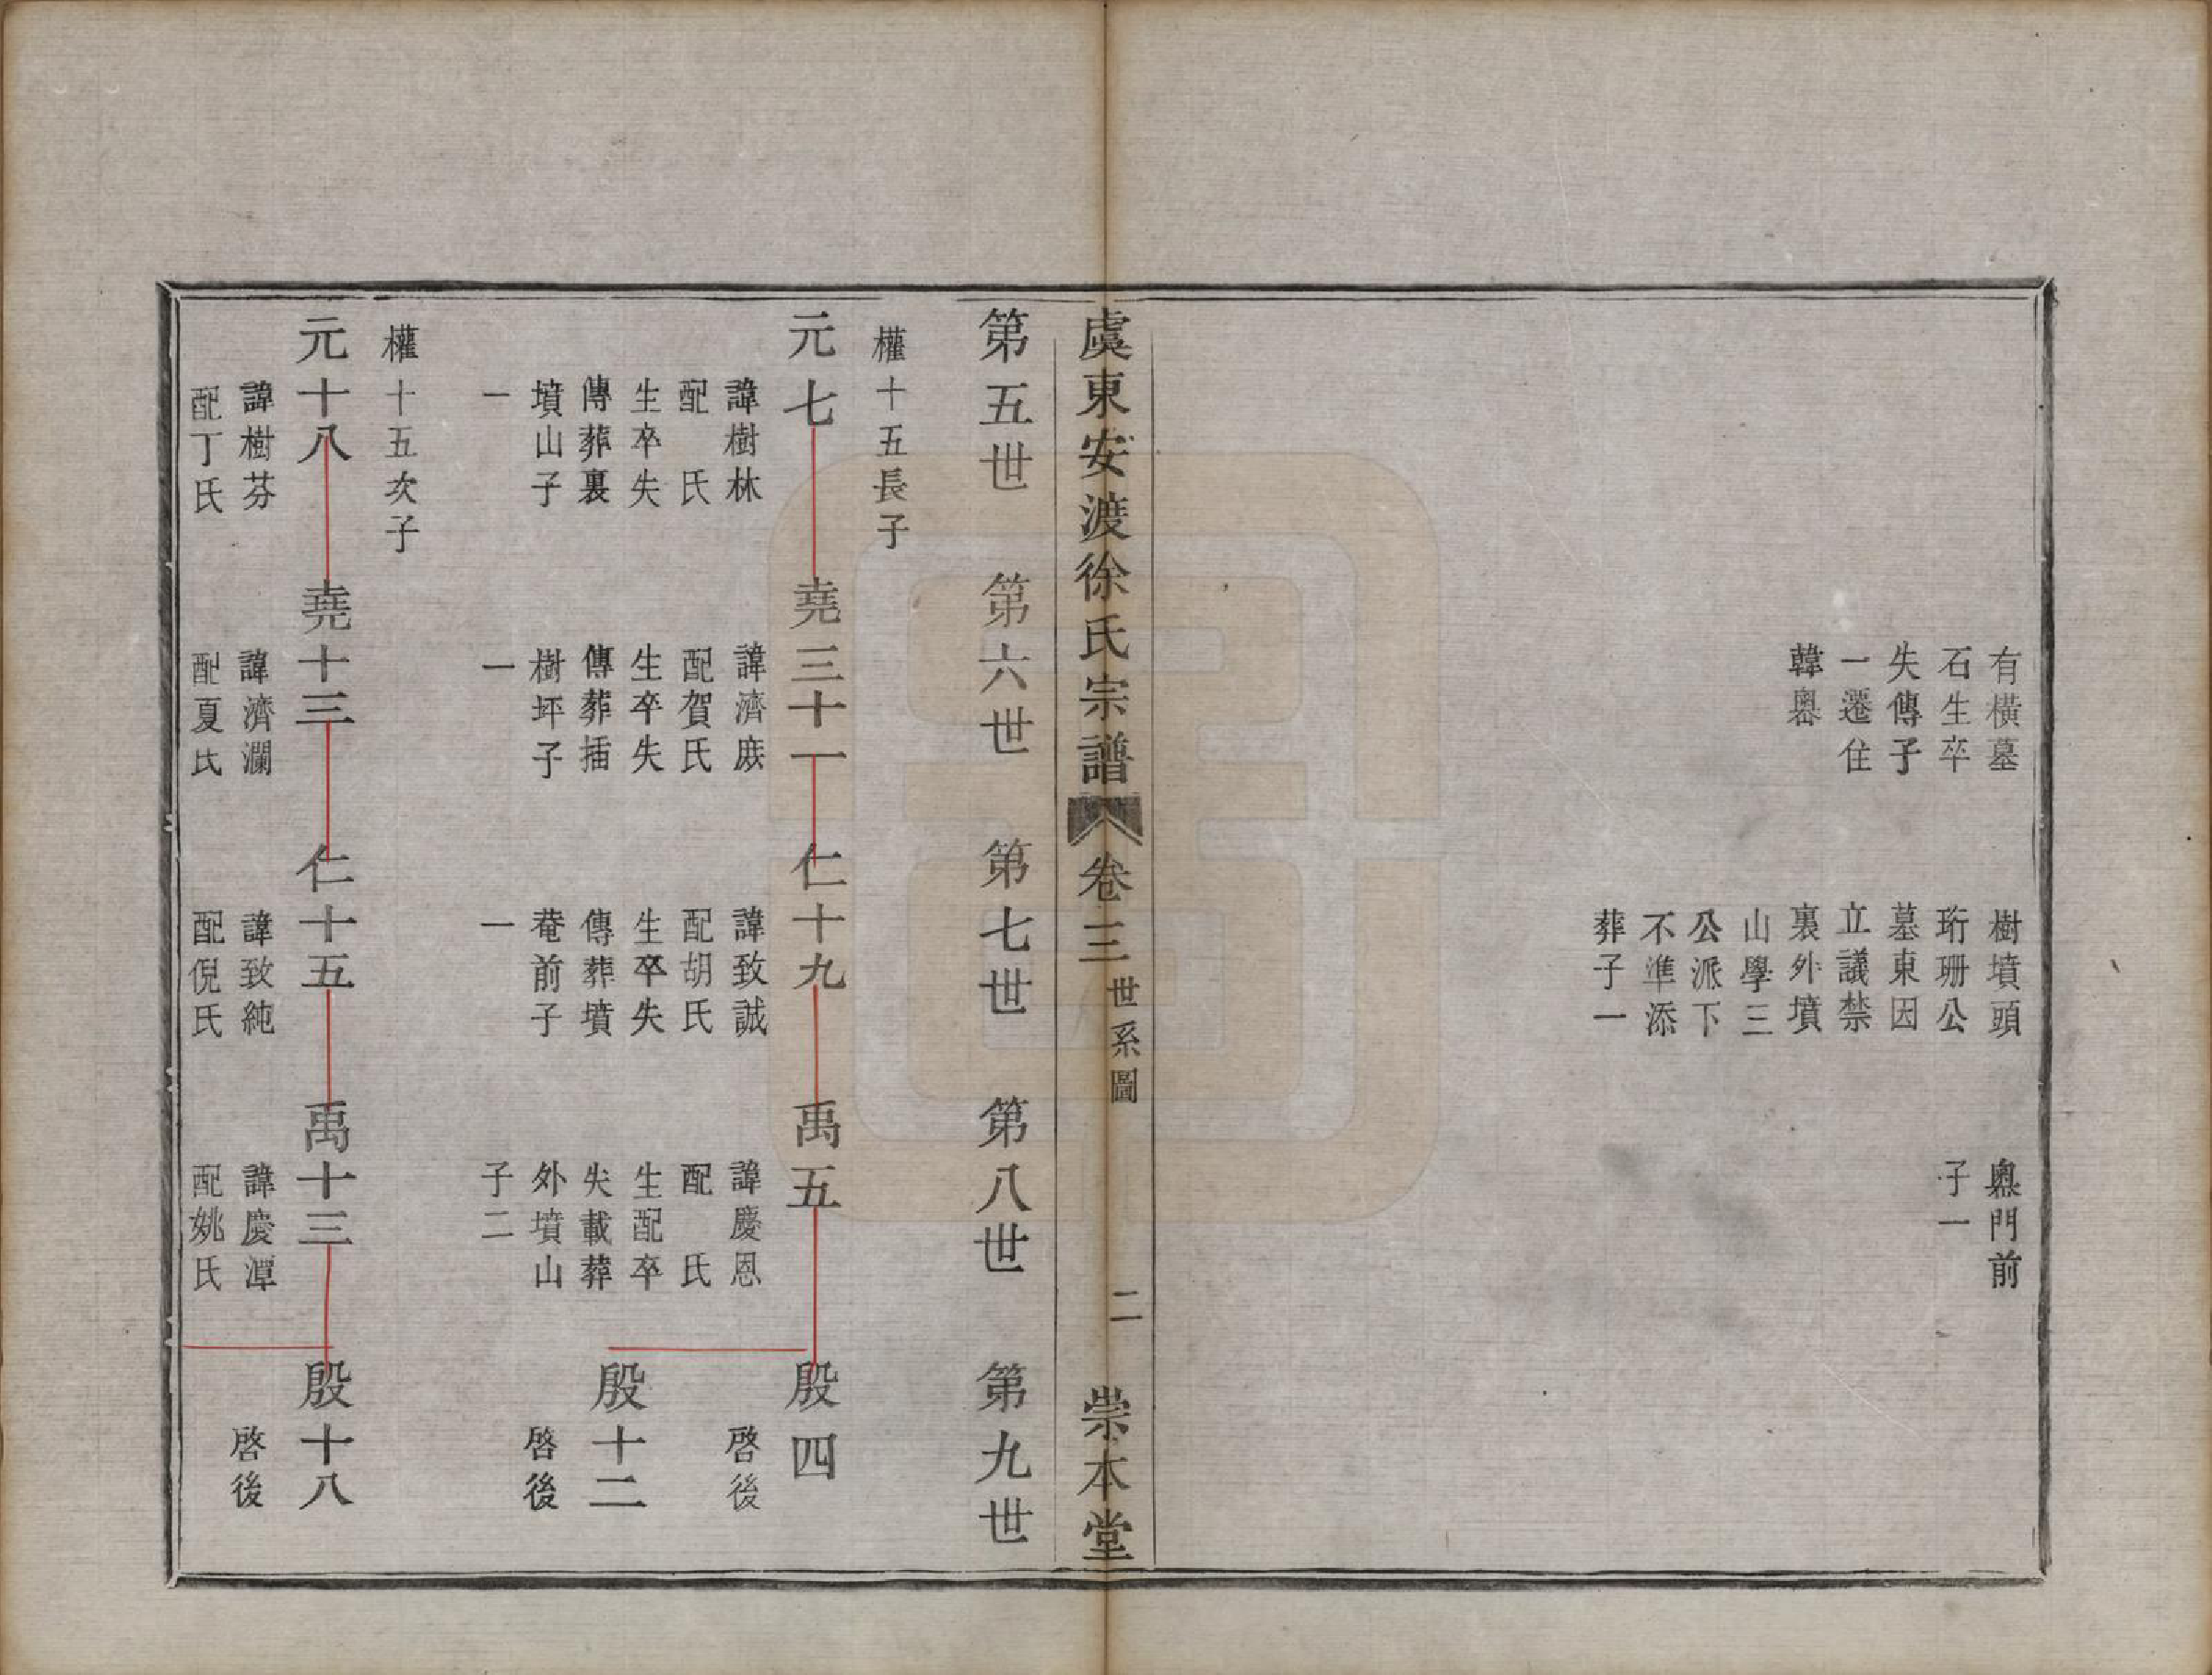 有橫墓
石生卒
失傳子
一遷住
韓嶴
樹墳頭
珩珊公
墓東因
立議禁
裏外墳
山學三
公派下
不準添
葬子一
嶴門前
子一
虞東安渡徐氏宗譜 卷三 世系圖 二 崇本堂
第五世 第六世 第七世 第八世 第九世
權十五長子
元七
諱樹林
配 氏
生卒失
傳葬裏
墳山子
一
堯三十一
諱濟
配賀氏
生卒失
傳葬插
樹坪子
一
仁十九
諱致誠
配胡氏
生卒失
傳葬墳
菴前子
一
禹五
諱慶恩
配 氏
生配卒
失載葬
外墳山
子二
殷四
啓後
殷十二
啓後
權十五次子
元十八
諱樹芬
配丁氏
堯十三
諱濟瀾
配夏氏
仁十五
諱致純
配倪氏
禹十三
諱慶潭
配姚氏
殷十八
啓後